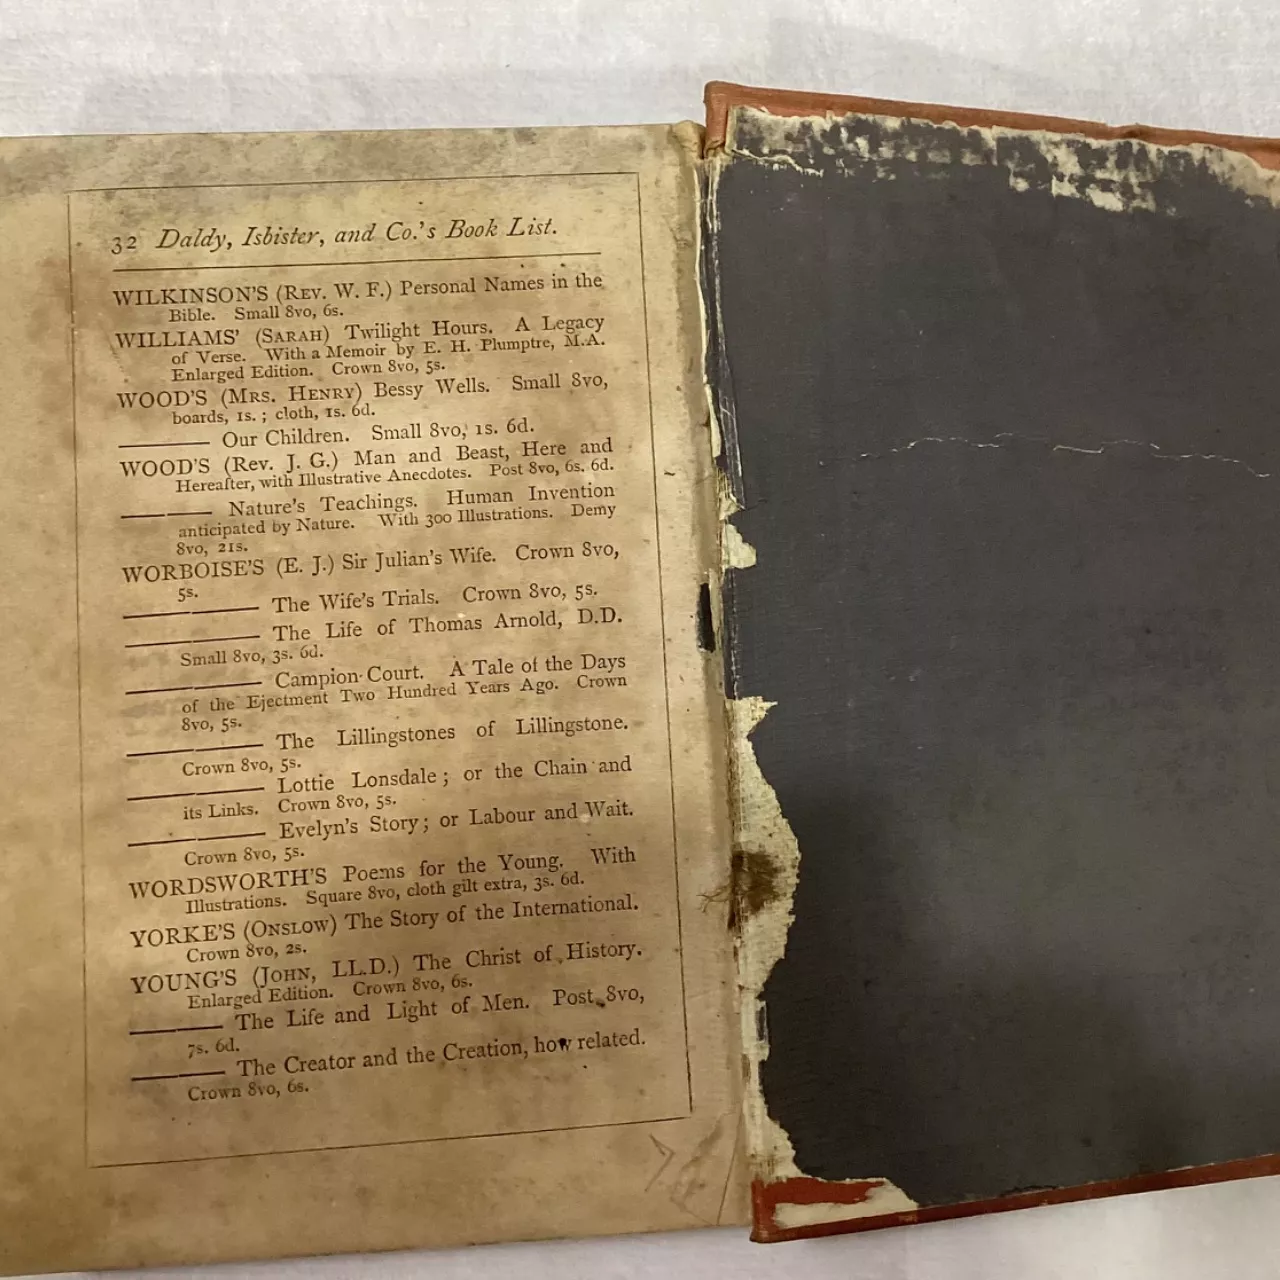 32 Daldy, Isbister, and Co.'s Book List.
WILKINSON'S (REV. W. F.) Personal Names in the
Bible. Small 8vo, 6s.
WILLIAMS' (SARAH) Twilight Hours. A Legacy
of Verse. With a Memoir by E. H. Plumptre, M.A.
Enlarged Edition. Crown 8vo, 5s.
WOOD'S (MRS. HENRY) Bessy Wells. Small 8vo,
boards, 1s.; cloth, 1s. 6d.
——— Our Children. Small 8vo, 1s. 6d.
WOOD'S (Rev. J. G.) Man and Beast, Here and
Hereafter, with Illustrative Anecdotes. Post 8vo, 6s. 6d.
——— Nature's Teachings. Human Invention
anticipated by Nature. With 300 Illustrations. Demy
8vo, 21s.
WORBOISE'S (E. J.) Sir Julian's Wife. Crown 8vo,
5s.
——— The Wife's Trials. Crown 8vo, 5s.
——— The Life of Thomas Arnold, D.D.
Small 8vo, 3s. 6d.
——— Campion Court. A Tale of the Days
of the Ejectment Two Hundred Years Ago. Crown
8vo, 5s.
——— The Lillingstones of Lillingstone.
Crown 8vo, 5s.
——— Lottie Lonsdale; or the Chain and
its Links. Crown 8vo, 5s.
——— Evelyn's Story; or Labour and Wait.
Crown 8vo, 5s.
WORDSWORTH'S Poems for the Young. With
Illustrations. Square 8vo, cloth gilt extra, 3s. 6d.
YORKE'S (ONSLOW) The Story of the International.
Crown 8vo, 2s.
YOUNG'S (JOHN, LL.D.) The Christ of History.
Enlarged Edition. Crown 8vo, 6s.
——— The Life and Light of Men. Post 8vo,
7s. 6d.
——— The Creator and the Creation, how related.
Crown 8vo, 6s.